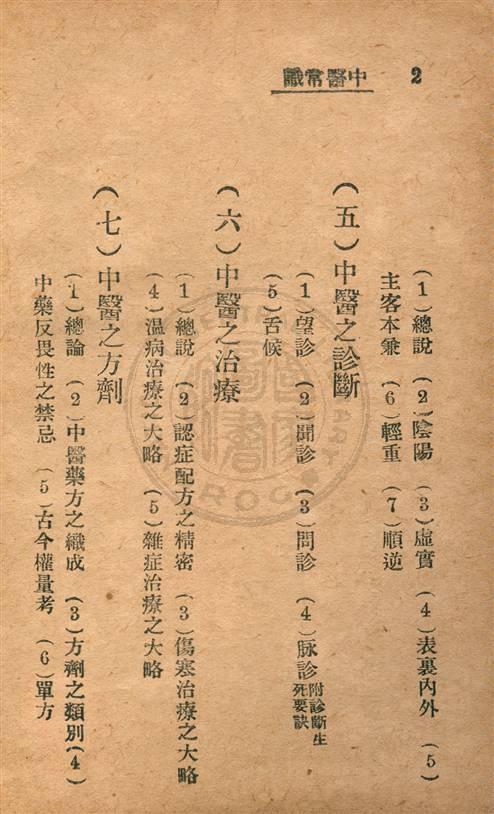 中醫常識
2
(1)總說 (2)陰陽 (3)虛實 (4)表裏內外 (5)
主客本兼 (6)輕重 (7)順逆
(五)中醫之診斷
(1)望診 (2)聞診 (3)問診 (4)脉診附診斷生死要訣
(5)舌候
(六)中醫之治療
(1)總說 (2)認症配方之精密 (3)傷寒治療之大略
(4)温病治療之大略 (5)雜症治療之大略
(七)中醫之方劑
(1)總論 (2)中醫藥方之織成 (3)方劑之類別(4)
中藥反畏性之禁忌 (5)古今權量考 (6)單方